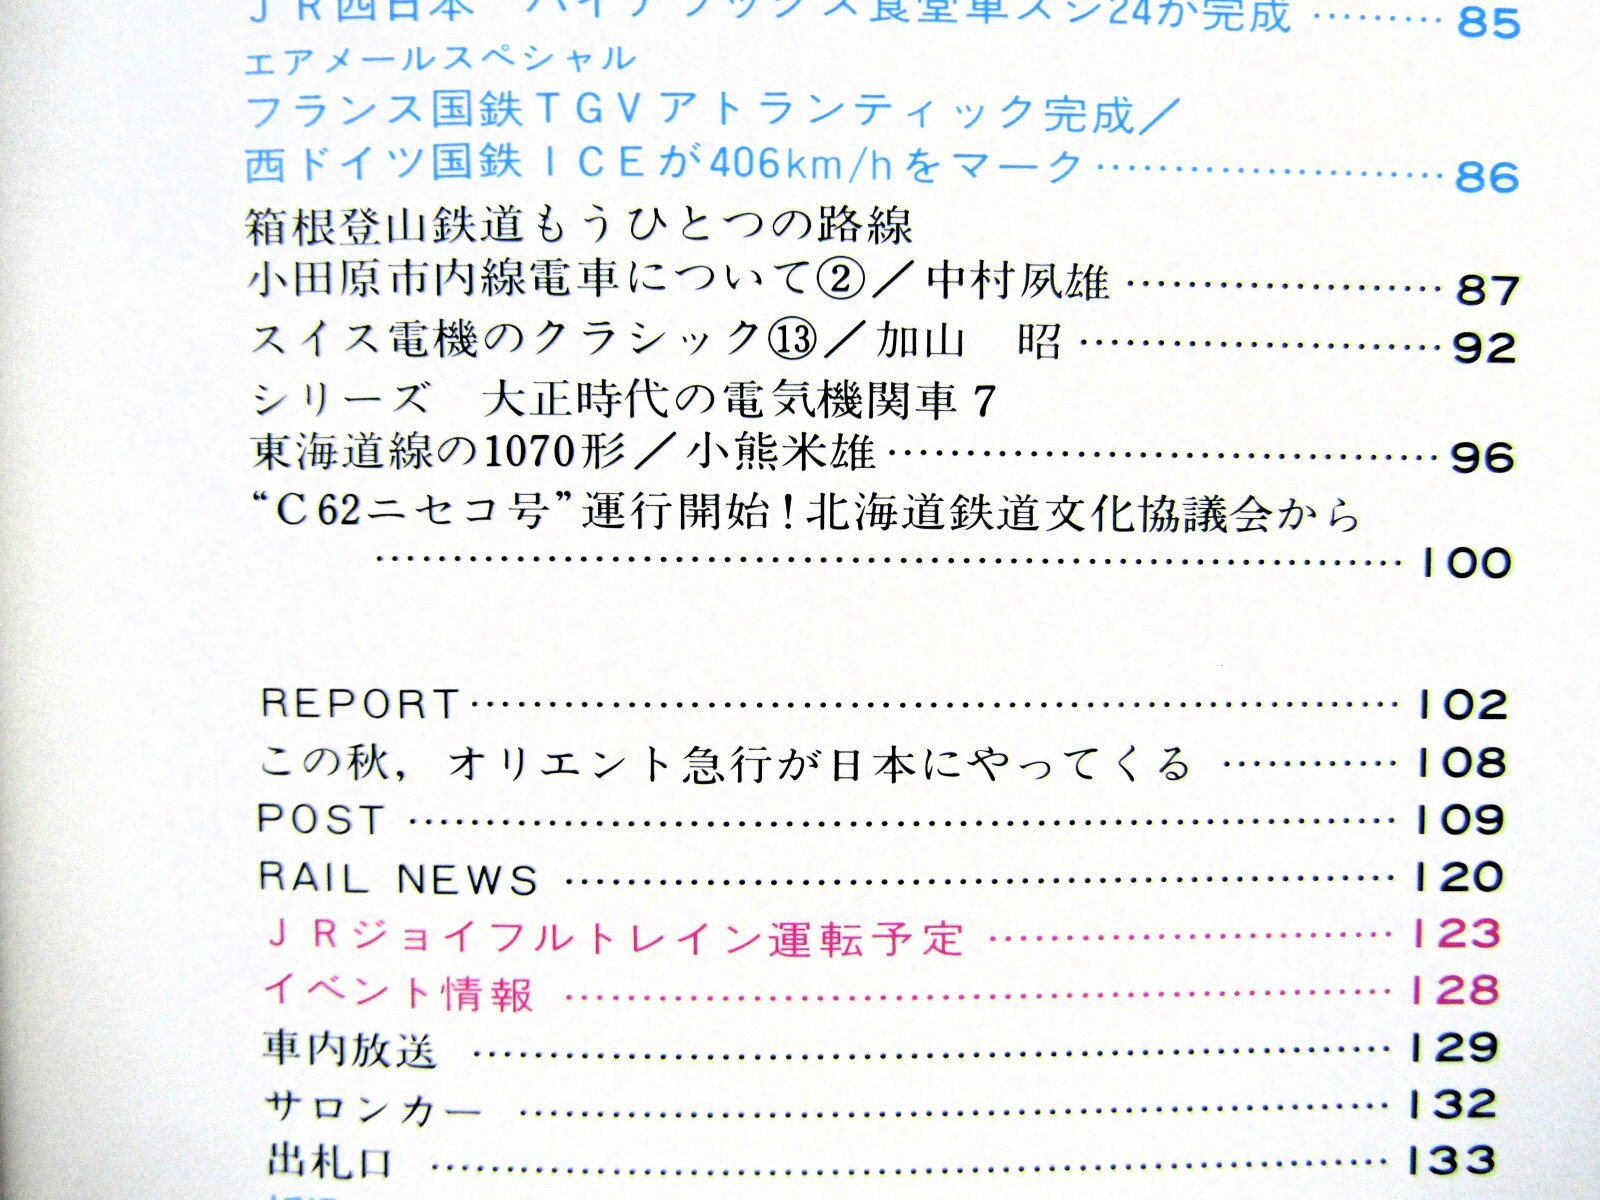 JR西日本　ハイデラックス食堂車スシ24が完成 ……… 85
エアメールスペシャル
フランス国鉄TGVアトランティック完成／
西ドイツ国鉄ICEが406km/hをマーク…………………… 86
箱根登山鉄道もうひとつの路線
小田原市内線電車について②／中村夙雄 ………………… 87
スイス電機のクラシック⑬／加山　昭 …………………… 92
シリーズ　大正時代の電気機関車 7
東海道線の1070形／小熊米雄……………………………… 96
“C62ニセコ号”運行開始！北海道鉄道文化協議会から
……………………………………………………………… 100
REPORT……………………………………………………… 102
この秋，オリエント急行が日本にやってくる ………… 108
POST ………………………………………………………… 109
RAIL NEWS ………………………………………………… 120
JRジョイフルトレイン運転予定 ……………………… 123
イベント情報 ……………………………………………… 128
車内放送 …………………………………………………… 129
サロンカー ………………………………………………… 132
出札口 ……………………………………………………… 133